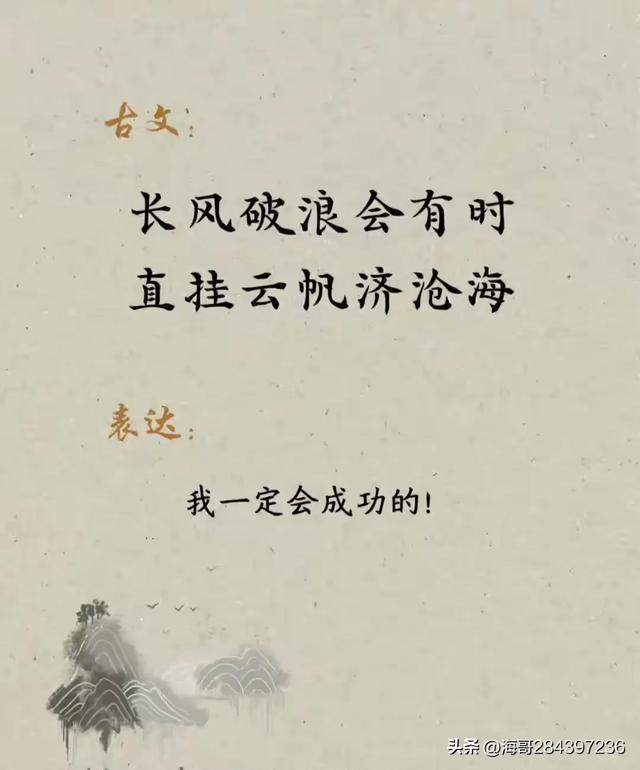 古文:
长风破浪会有时
直挂云帆济沧海
表达:
我一定会成功的!
头条 @海哥284397236